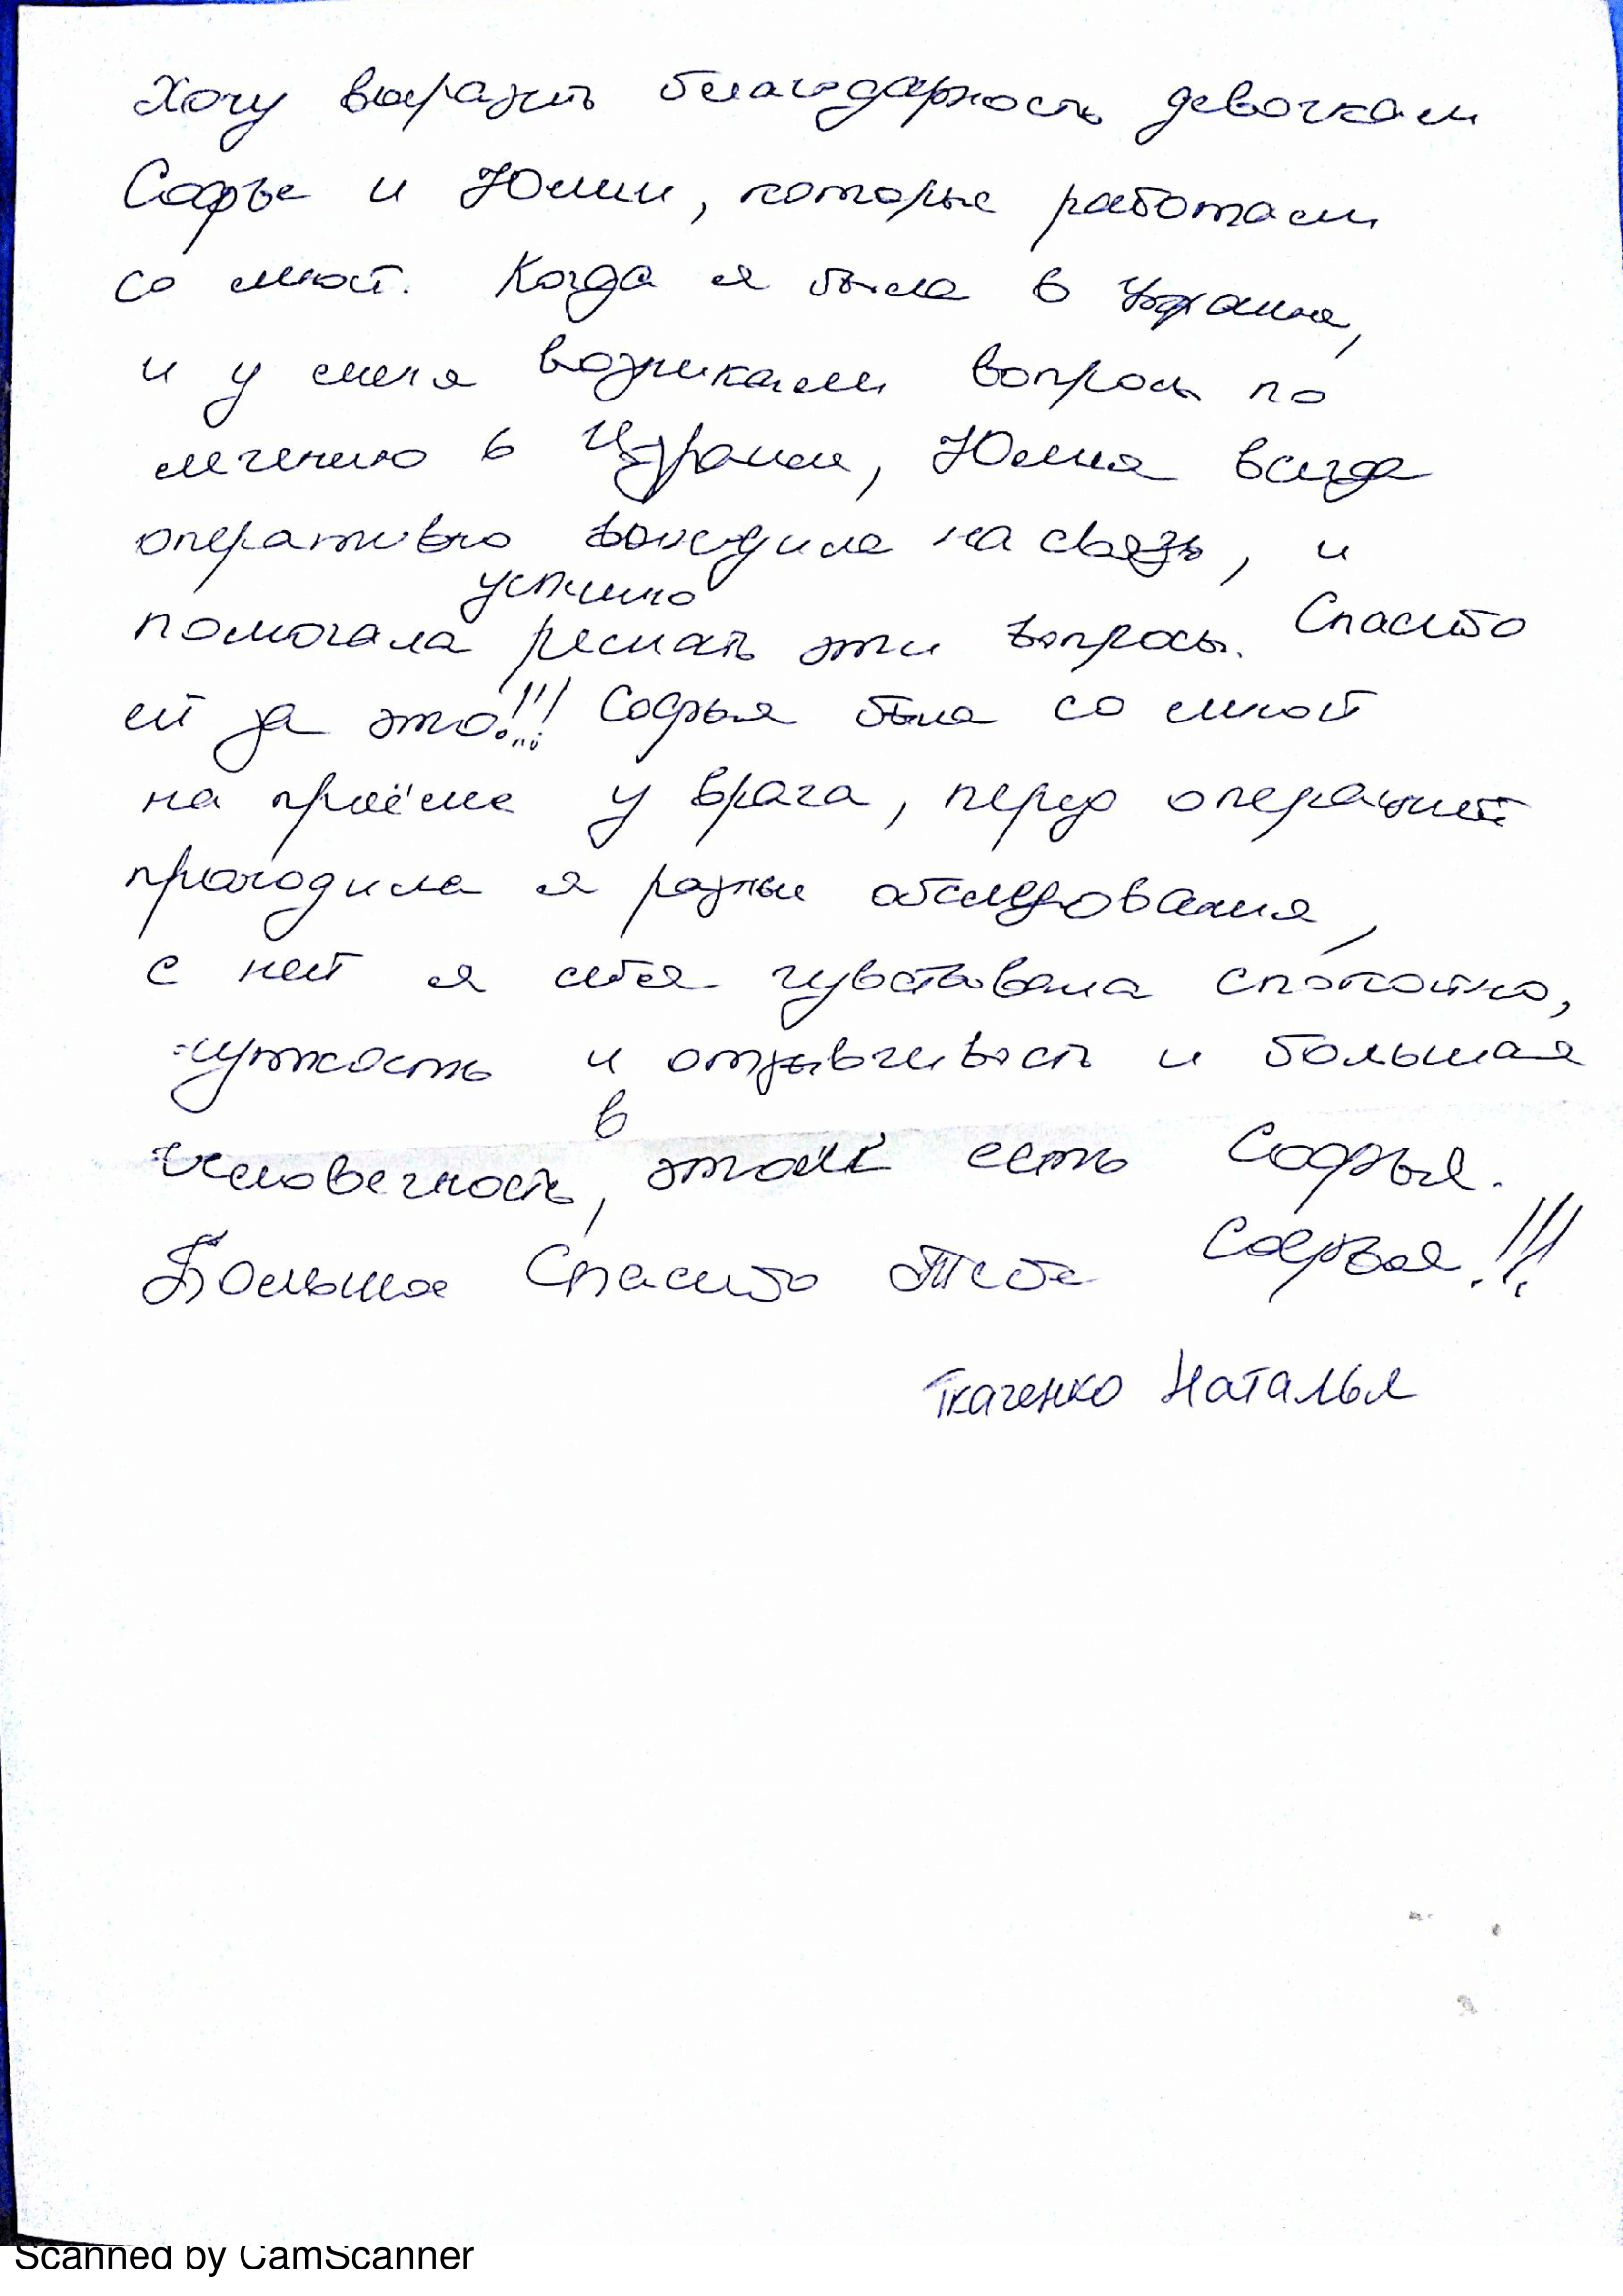 Хочу выразить благодарность девочкам
Софье и Юлии, которые работали
со мной. Когда я была в Украине,
и у меня возникали вопросы по
лечению в Израиле, Юлия всегда
оперативно выходила на связь, и
успешно
помогала решать эти вопросы. Спасибо
ей за это!!! Софья была со мной
на приёме у врача, перед операцией
проходила я разные обследования,
с ней я себя чувствовала спокойно,
чуткость и отзывчивость и большая
в
человечность, этом есть Софья.
Большое Спасибо Тебе Софья!!!
Ткаченко Наталья
Scanned by CamScanner